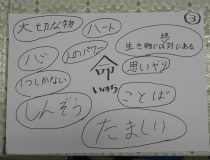 ③
大切な物
ハート
絶
生き物には対にある
人のパワー
心
命
いのち
思いやり
1つしかない
しんぞう
ことば
たましい